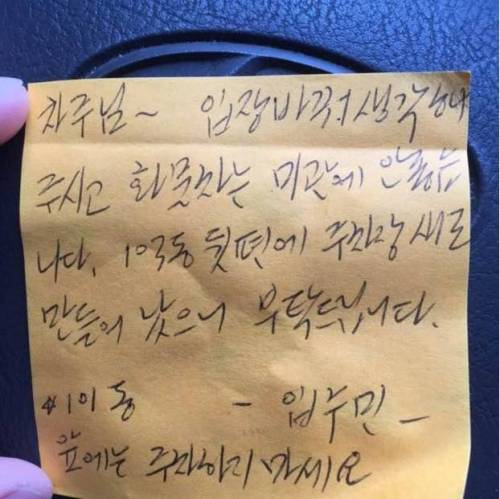 차주님~ 입장바꿔 생각해
주시고 화물차는 미관에 안좋습
니다. 103동 뒷편에 주차장 새로
만들어 놨으니 부탁드립니다.
101동 - 입주민 -
앞에는 주차하지 마세요